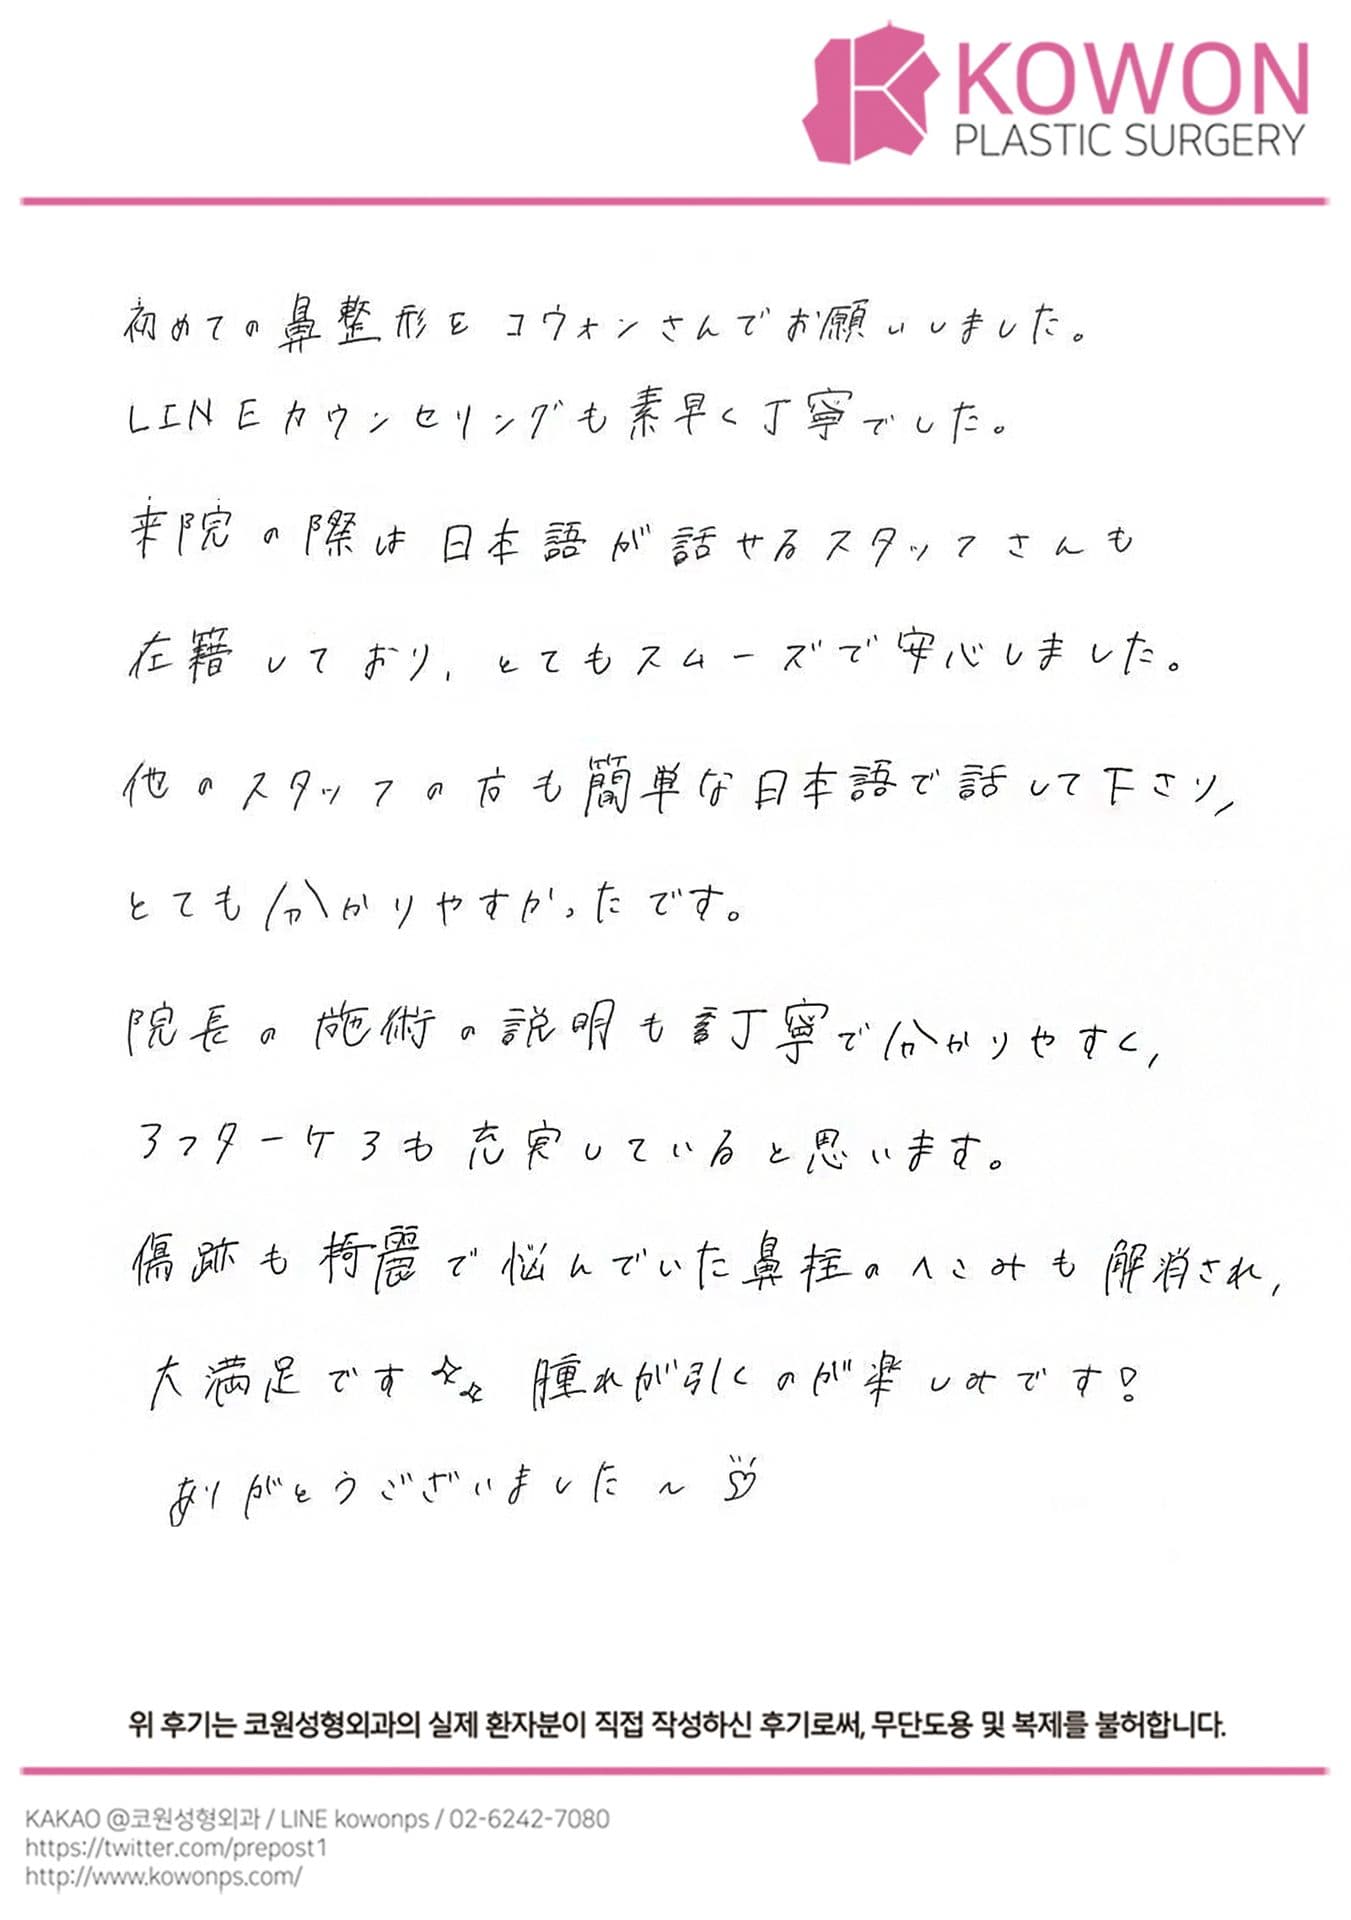 KOWON
PLASTIC SURGERY
初めての鼻整形をコウォンさんでお願いしました。
LINEカウンセリングも素早く丁寧でした。
来院の際は日本語が話せるスタッフさんも
在籍しており、とてもスムーズで安心しました。
他のスタッフの方も簡単な日本語で話して下さり、
とても分かりやすかったです。
院長の施術の説明も丁寧で分かりやすく、
アフターケアも充実していると思います。
傷跡も綺麗で悩んでいた鼻柱のへこみも解消され、
大満足です☆☆ 腫れが引くのが楽しみです!
ありがとうございました〜♡
위 후기는 코원성형외과의 실제 환자분이 직접 작성하신 후기로써, 무단도용 및 복제를 불허합니다.
KAKAO @코원성형외과 / LINE kowonps / 02-6242-7080
https://twitter.com/prepost1
http://www.kowonps.com/